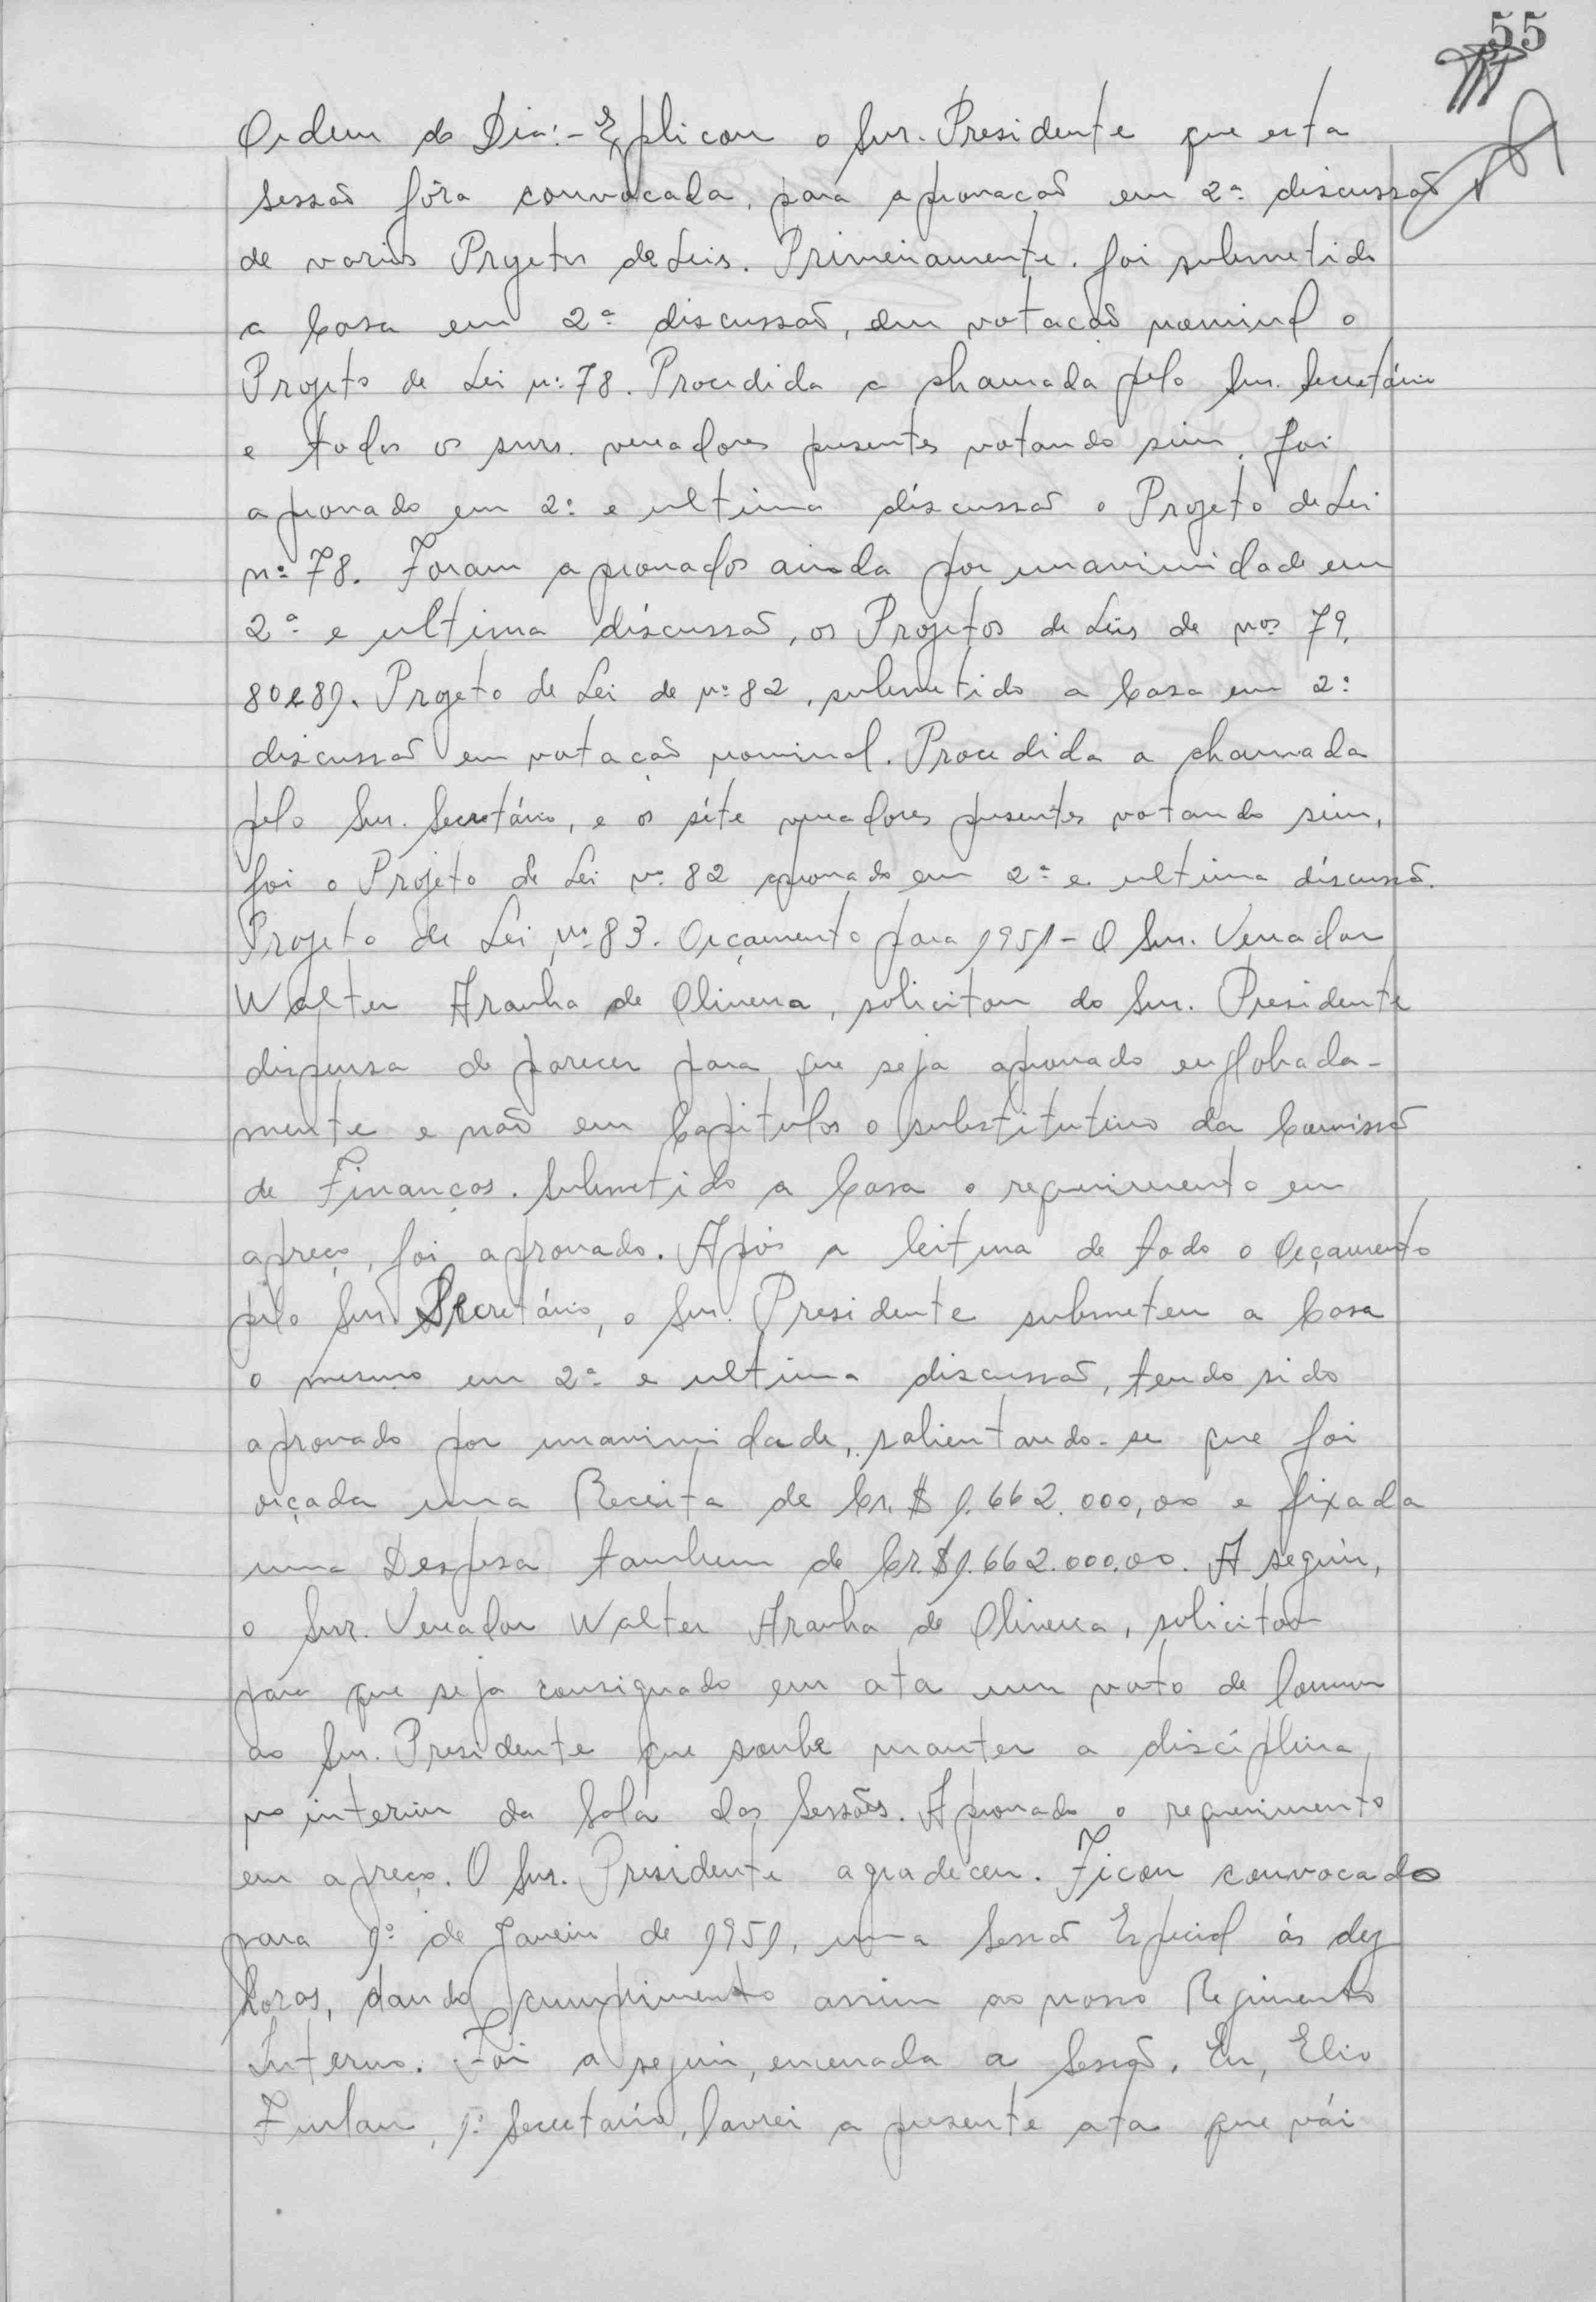 55
Ordem do Dia:- Explicou o Snr. Presidente que esta
sessão fôra convocada, para aprovação em 2ª discussão
de varios Projetos de Leis. Primeiramente, foi submetido
a Casa em 2ª discussão, em votação nominal o
Projeto de Lei nº 78. Procedida a chamada pelo Snr. Secretário
e todos os snrs. vereadores presentes votando sim, foi
aprovado em 2ª e ultima discussão o Projeto de Lei
nº 78. Foram aprovados ainda por unanimidade em
2ª e ultima discussão, os Projetos de Leis de nos 79,
80 e 81. Projeto de Lei de nº 82, submetido a Casa em 2ª
discussão em votação nominal. Procedida a chamada
pelo Snr. Secretário, e os séte vereadores presentes votando sim,
foi o Projeto de Lei nº 82 aprovado em 2ª e ultima discussão.
Projeto de Lei nº 83. Orçamento para 1951 - O Snr. Vereador
Walter Aranha de Oliveira, solicitou do Snr. Presidente
dispensa de parecer para que seja aprovado englobada-
mente e não em Capitulos o substitutivo da Comissão
de Finanças. Submetido a Casa o requerimento em
apreço, foi aprovado. Após a leitura de todo o Orçamento
pelo Snr. Secretário, o Snr. Presidente submeteu a Casa
o mesmo em 2ª e ultima discussão, tendo sido
aprovado por unanimidade, salientando-se que foi
orçada uma Receita de Cr.$ 1.662.000,00 e fixada
uma Despesa tambem de Cr.$ 1.662.000,00. A seguir,
o Snr. Vereador Walter Aranha de Oliveira, solicitou
para que seja consignado em ata um voto de louvor
ao Snr. Presidente que soube manter a disciplina,
no interim da Sala das Sessões. Aprovado o requerimento
em apreço. O Snr. Presidente agradeceu. Ficou convocado
para 1º de Janeiro de 1951, uma Sessão Especial ás dez
horas, dando cumprimento assim ao nosso Regimento
Interno. Foi a seguir, encerrada a Sessão. Eu, Elio
Furlan, 1º Secretario, lavrei a presente ata que vái